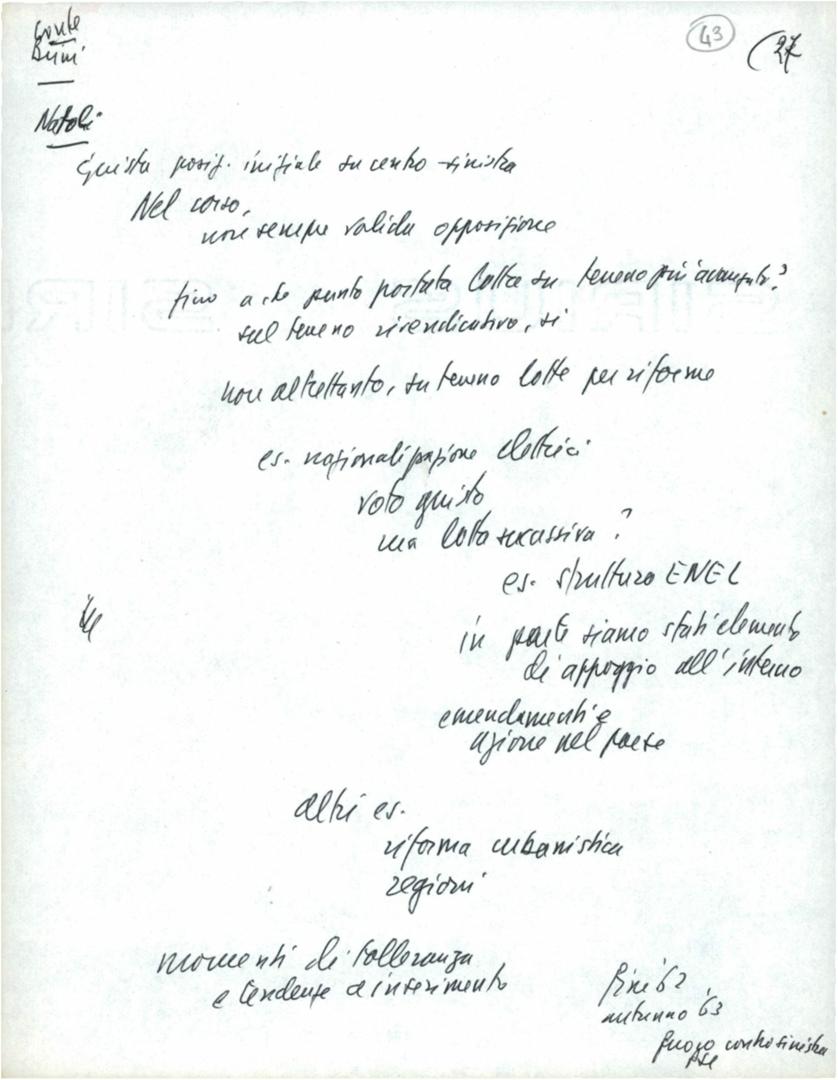 Conte
Brini
43
(27
Natoli
Giusta posiz. iniziale su centro-sinistra
Nel corso,
non sempre valida opposizione
fino a che punto portata lotta su terreno più avanzato?
sul terreno rivendicativo, sì
non altrettanto, su terreno lotte per riforme
es. nazionalizzazione elettrici
voto giusto
ma lotta successiva?
es. struttura ENEL
in parte siamo stati elemento
di appoggio all'interno
emendamenti e
azione nel paese
altri es.
riforma urbanistica
regioni
momenti di tolleranza
e tendenze a inserimento
fine '62
autunno '63
centrosinistra